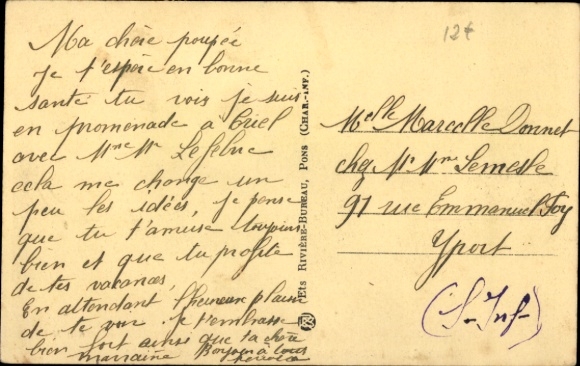 Ma chère poupée
je t'espère en bonne
santé tu vois je suis
en promenade à Criel
avec Mme Mr Lefebvre
cela me change un
peu les idées, je pense
que tu t'amuse toujours
bien et que tu profite
de tes vacances,
En attendant l'heureux plaisir
de te voir je t'embrasse
bien fort ainsi que ta chère
marraine Bonjour à tous
Ets Rivière-Bureau, Pons (Char.-Inf.)
12€
Melle Marcelle Donnet
chez Mr Mme Lemesle
91 rue Emmanuel Foy
Yport
(S-Inf-)